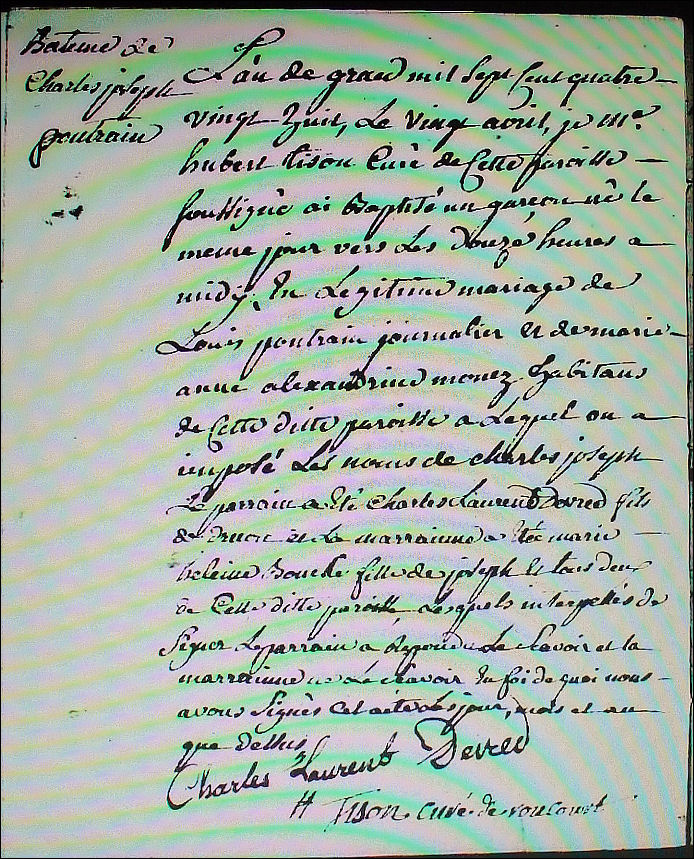 Bateme de
Charles joseph
poutrain
L'an de grace mil sept cent quatre
vingt huit, Le vingt avril, je me.
hubert tison Curé de Cette paroisse
soussigné ai Baptisé un garcon né le
meme jour vers Les Douze heures a
midy, En Legitime mariage de
Louis poutrain journalier Et de marie-
anne alexandrine monez habitans
de Cette ditte paroisse a Lequel on a
imposé Les noms de charles joseph
Le parrain a Eté Charles Laurent Devred fils
de Druon et La marrainne a Etée marie
heleine Bouchе fille de joseph Et tous deux
de Cette ditte paroisse Lesquels interpellés de
Signer Le parrain a Repondu Le sçavoir et la
marrainne ne Le sçavoir En foi de quoi nous
avons Signés Cet acte Les jour, mois et an
que dessus
Charles Laurent Devred
H Tison curé de roucourt